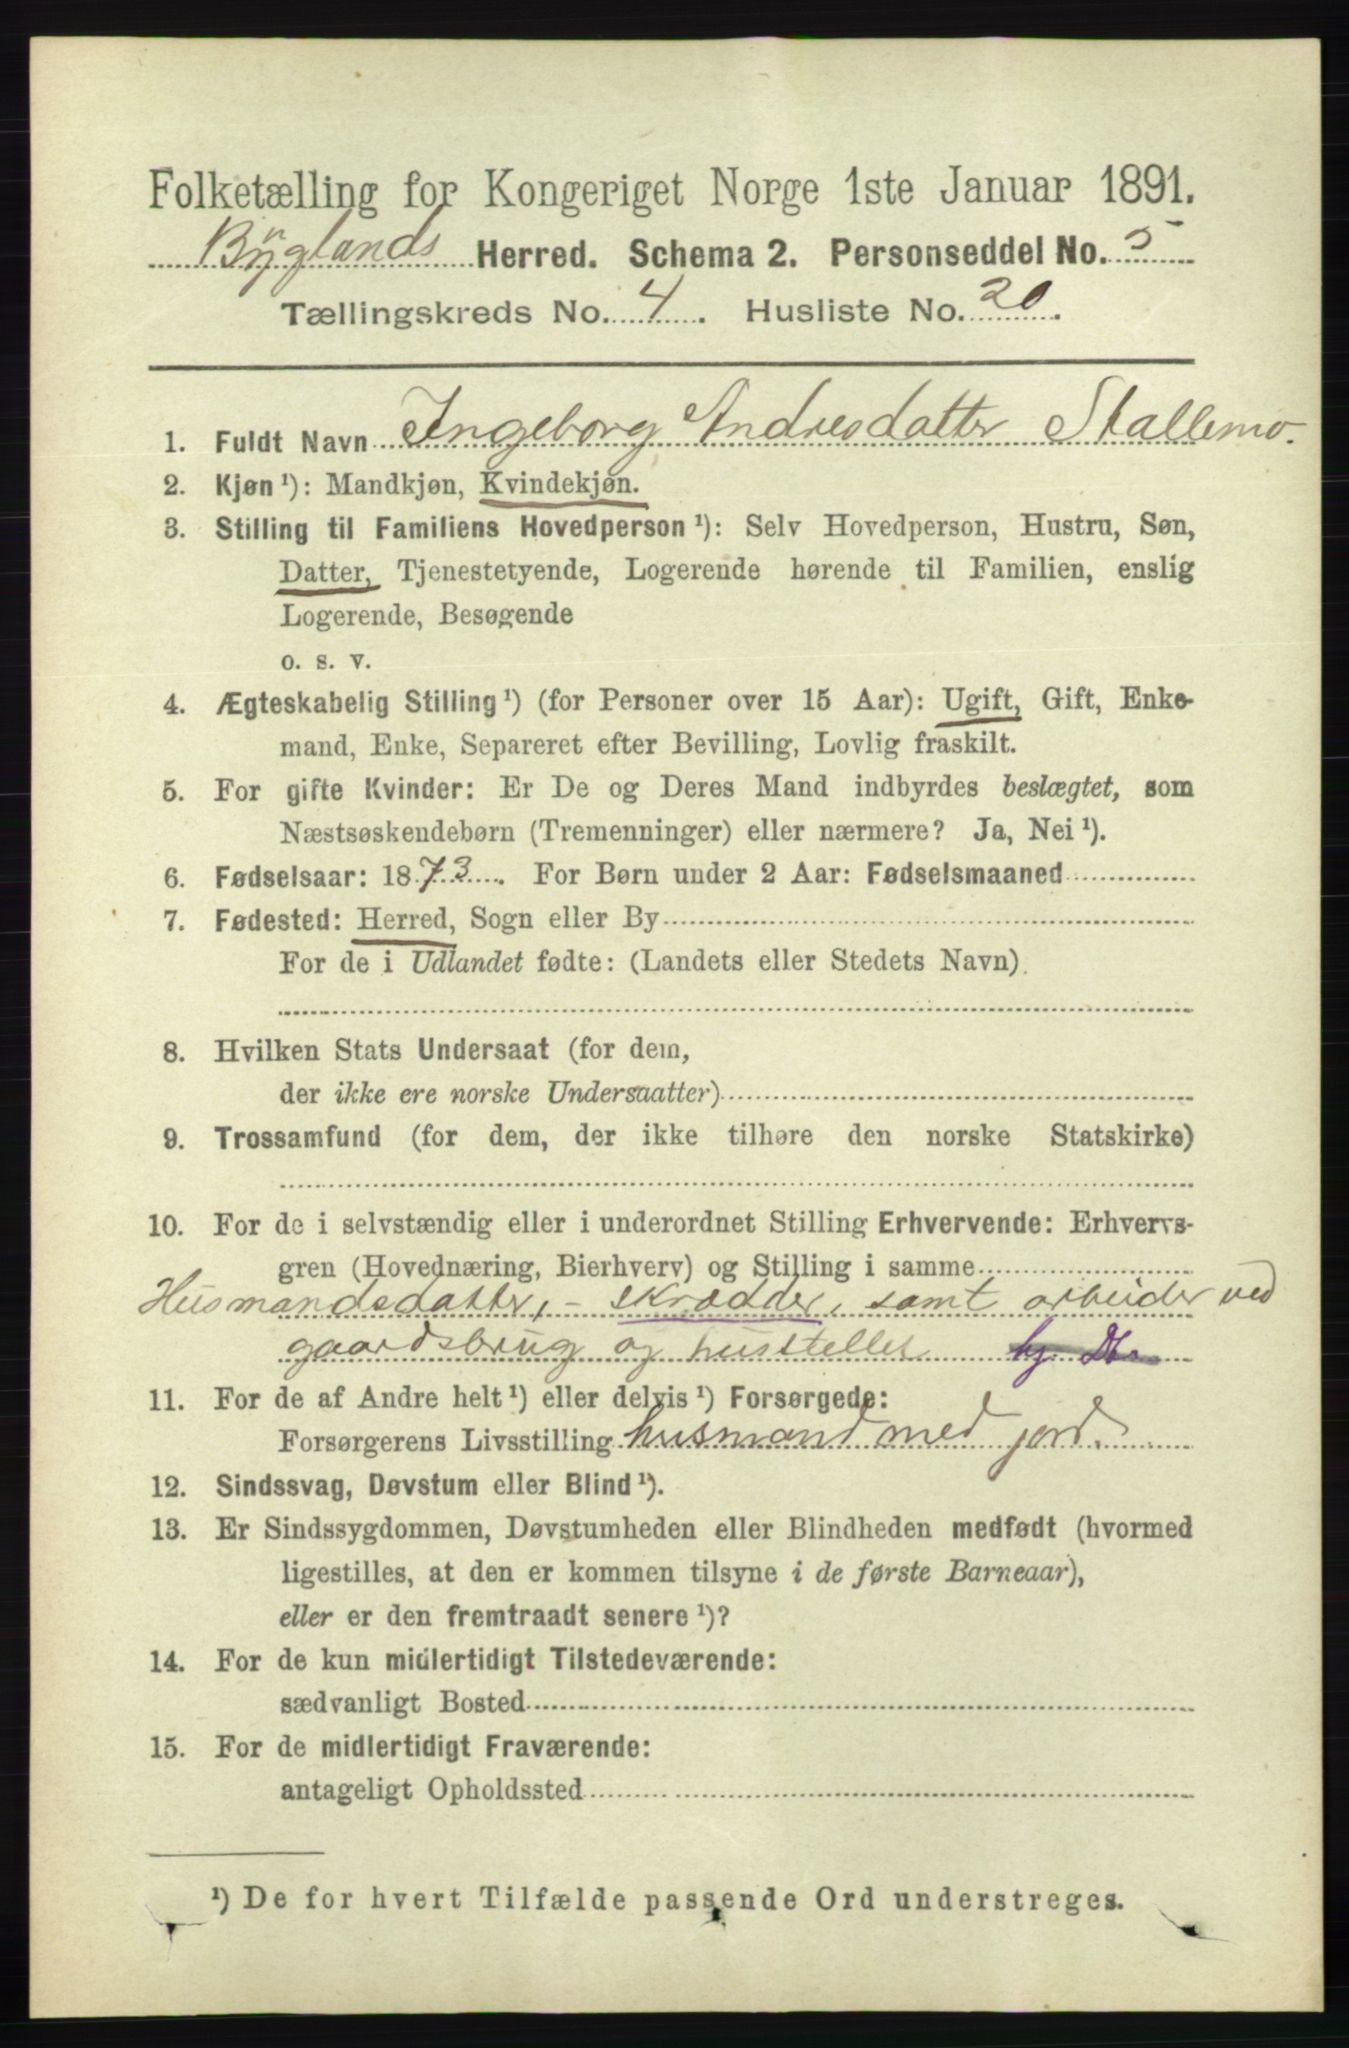 Folketælling for Kongeriget Norge 1ste Januar 1891.
Byglands Herred. Schema 2. Personseddel No. 5
Tællingskreds No. 4. Husliste No. 20.
1. Fuldt Navn Ingeborg Andresdatter Skallemo.
2. Kjøn ¹): Mandkjøn, Kvindekjøn.
3. Stilling til Familiens Hovedperson ¹): Selv Hovedperson, Hustru, Søn,
Datter, Tjenestetyende, Logerende hørende til Familien, enslig
Logerende, Besøgende
o. s. v.
4. Ægteskabelig Stilling ¹) (for Personer over 15 Aar): Ugift, Gift, Enke-
mand, Enke, Separeret efter Bevilling, Lovlig fraskilt.
5. For gifte Kvinder: Er De og Deres Mand indbyrdes beslægtet, som
Næstsøskendebørn (Tremenninger) eller nærmere? Ja, Nei ¹).
6. Fødselsaar: 1873. For Børn under 2 Aar: Fødselsmaaned
7. Fødested: Herred, Sogn eller By
For de i Udlandet fødte: (Landets eller Stedets Navn)
8. Hvilken Stats Undersaat (for dem,
der ikke ere norske Undersaatter)
9. Trossamfund (for dem, der ikke tilhøre den norske Statskirke)
10. For de i selvstændig eller i underordnet Stilling Erhvervende: Erhvervs-
gren (Hovednæring, Bierhverv) og Stilling i samme
Husmandsdatter, - skrædder, samt arbeider ved
gaardsbrug og husstellet
11. For de af Andre helt ¹) eller delvis ¹) Forsørgede:
Forsørgerens Livsstilling husmand med jord.
12. Sindssvag, Døvstum eller Blind ¹).
13. Er Sindssygdommen, Døvstumheden eller Blindheden medfødt (hvormed
ligestilles, at den er kommen tilsyne i de første Barneaar),
eller er den fremtraadt senere ¹)?
14. For de kun midlertidigt Tilstedeværende:
sædvanligt Bosted
15. For de midlertidigt Fraværende:
antageligt Opholdssted
¹) De for hvert Tilfælde passende Ord understreges.